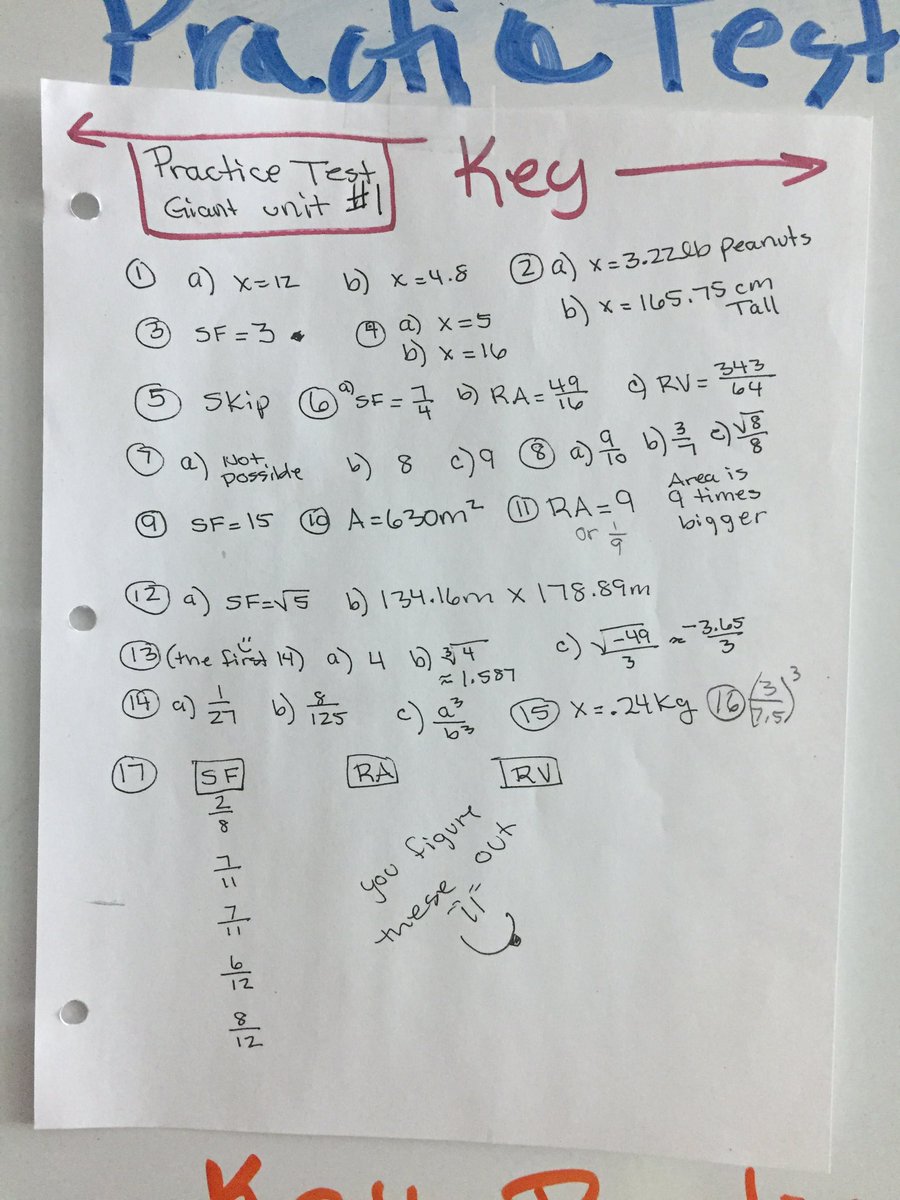 Practice Test
Practice Test Key
Giant unit #1
① a) x=12 b) x=4.8 ② a) x=3.22lb peanuts
b) x=165.75 cm Tall
③ SF=3 ④ a) x=5
b) x=16
⑤ Skip ⑥ a) SF=7/4 b) RA=49/16 c) RV=343/64
⑦ a) Not possible b) 8 c) 9 ⑧ a) 9/10 b) 3/7 c) √8/8
⑨ SF=15 ⑩ A=630m² ⑪ RA=9 or 1/9 Area is 9 times bigger
⑫ a) SF=√5 b) 134.16m x 178.89m
⑬ (the first 14) a) 4 b) ∛4 ≈1.587 c) √-49/3 ≈ -3.65/3
⑭ a) 1/27 b) 8/125 c) a³/b³ ⑮ x=.24Kg ⑯ (3/7.5)³
⑰ SF RA RV
2/8
7/11
7/11
6/12
8/12
you figure
these out